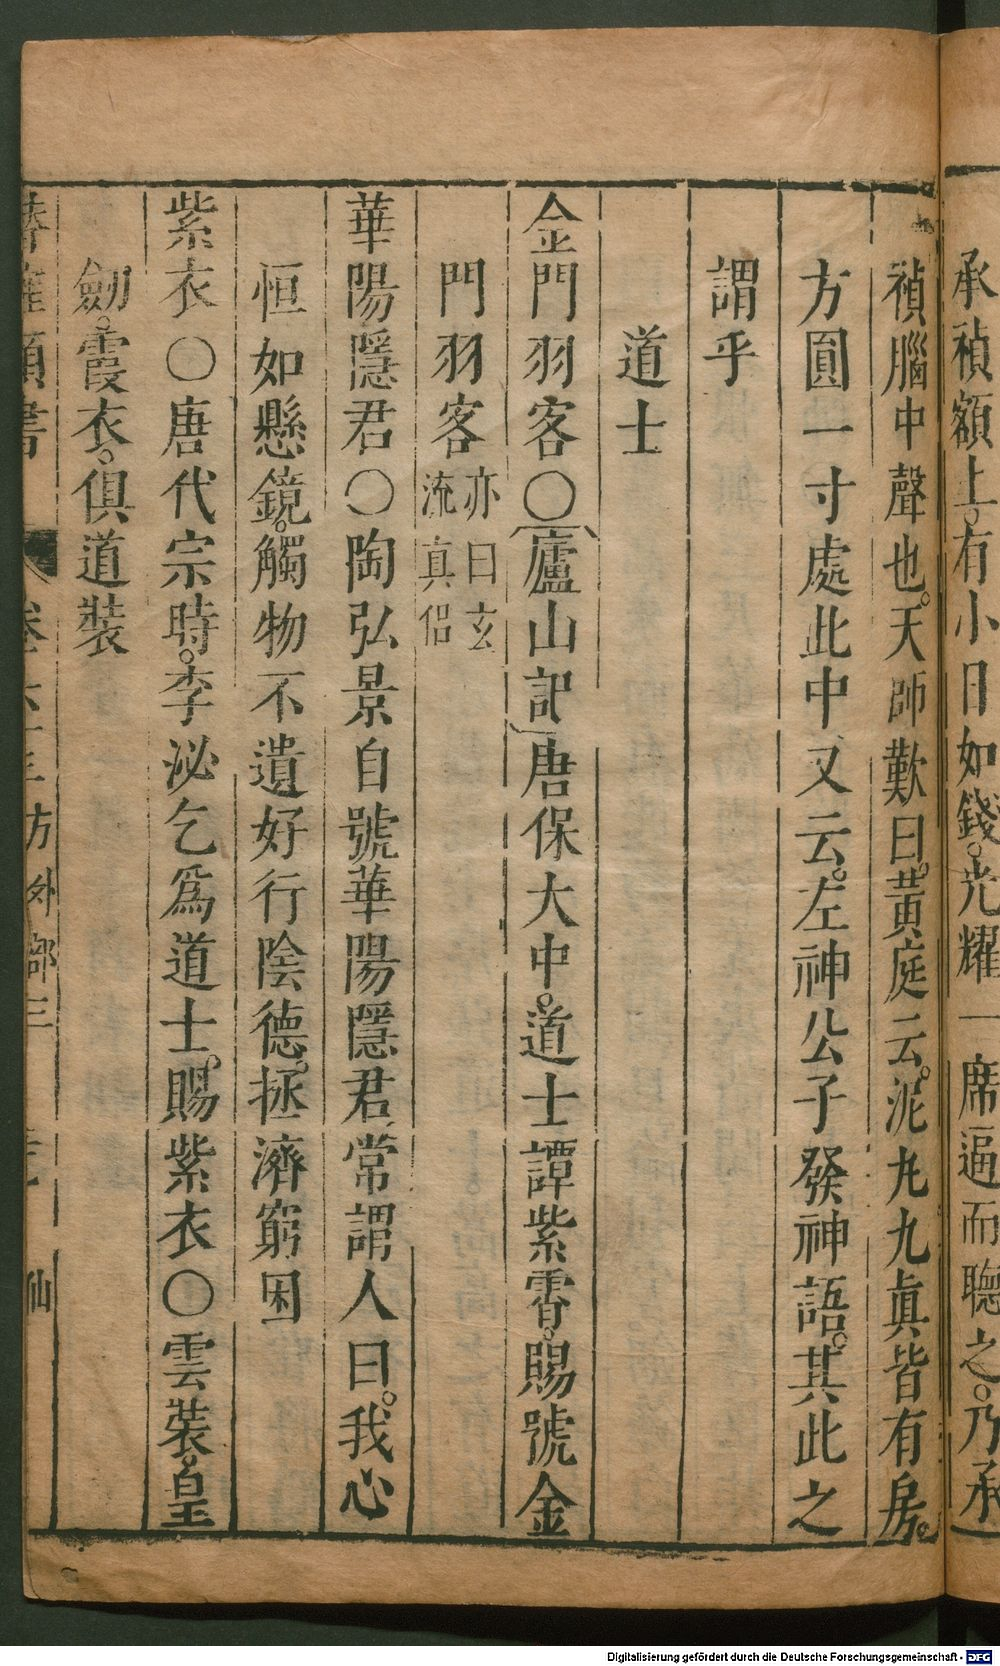 承禎額上。有小日如錢。光耀一席逼而聰之。乃承
禎腦中聲也。天師歎曰。黃庭云。泥丸九眞皆有房。
方圓一寸處此中又云。左神公子發神語。其此之
謂乎
道士
金門羽客○廬山記唐保大中。道士譚紫霄。賜號金
門羽客亦曰玄流真侶
華陽隱君○陶弘景自號華陽隱君常謂人曰。我心
恒如懸鏡。觸物不遺好行陰德。拯濟窮困
紫衣○唐代宗時。李泌乞爲道士。賜紫衣○雲裝。皇
劒。霞衣。俱道裝
卷六十三 方外部三 仙
Digitalisierung gefördert durch die Deutsche Forschungsgemeinschaft - DFG